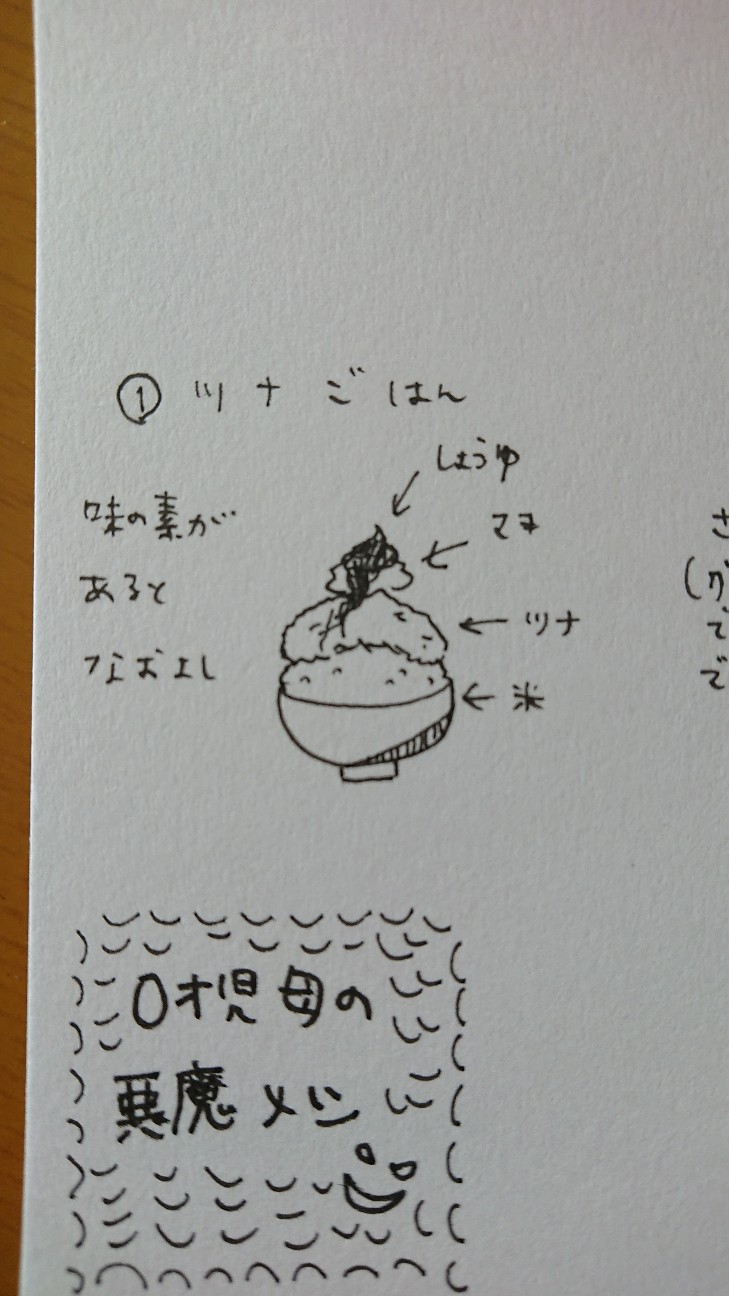 ① ツナごはん
しょうゆ
マヨ
ツナ
米
味の素が
あると
なおよし
さ
(グ
で
で
0才児母の
悪魔メシ